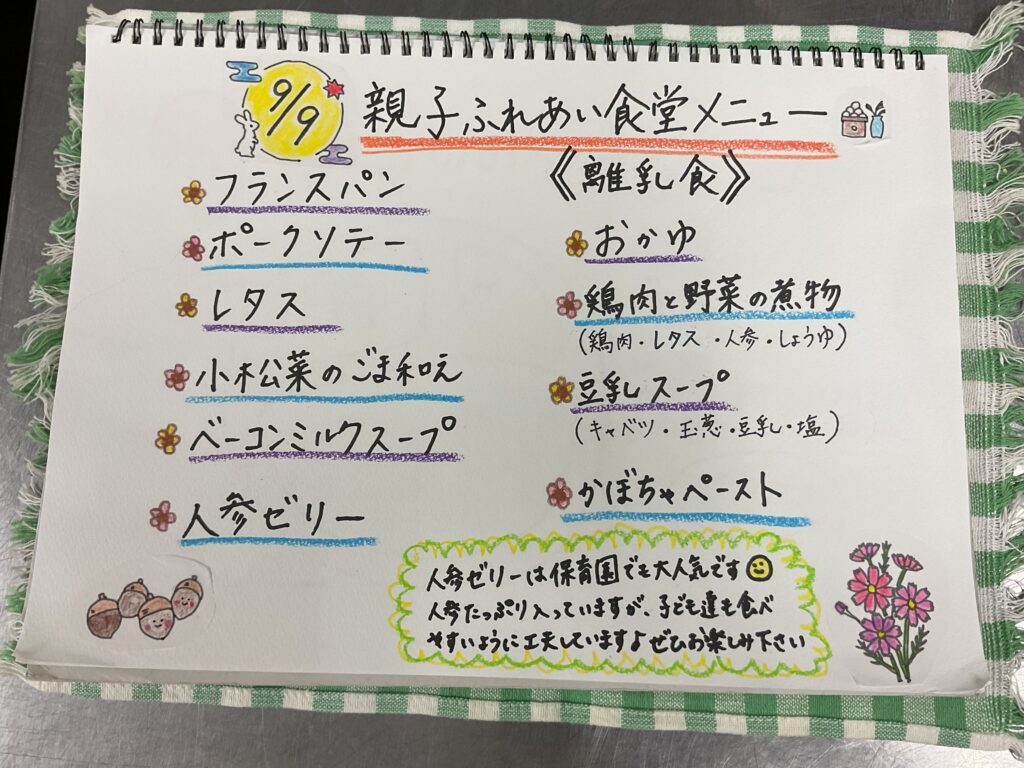 9/9
親子ふれあい食堂メニュー
フランスパン
ポークソテー
レタス
小松菜のごま和え
ベーコンミルクスープ
人参ゼリー
《離乳食》
おかゆ
鶏肉と野菜の煮物
(鶏肉・レタス・人参・しょうゆ)
豆乳スープ
(キャベツ・玉葱・豆乳・塩)
かぼちゃペースト
人参ゼリーは保育園でも大人気です
人参たっぷり入っていますが、子ども達も食べ
やすいように工夫しています♪ぜひお楽しみ下さい